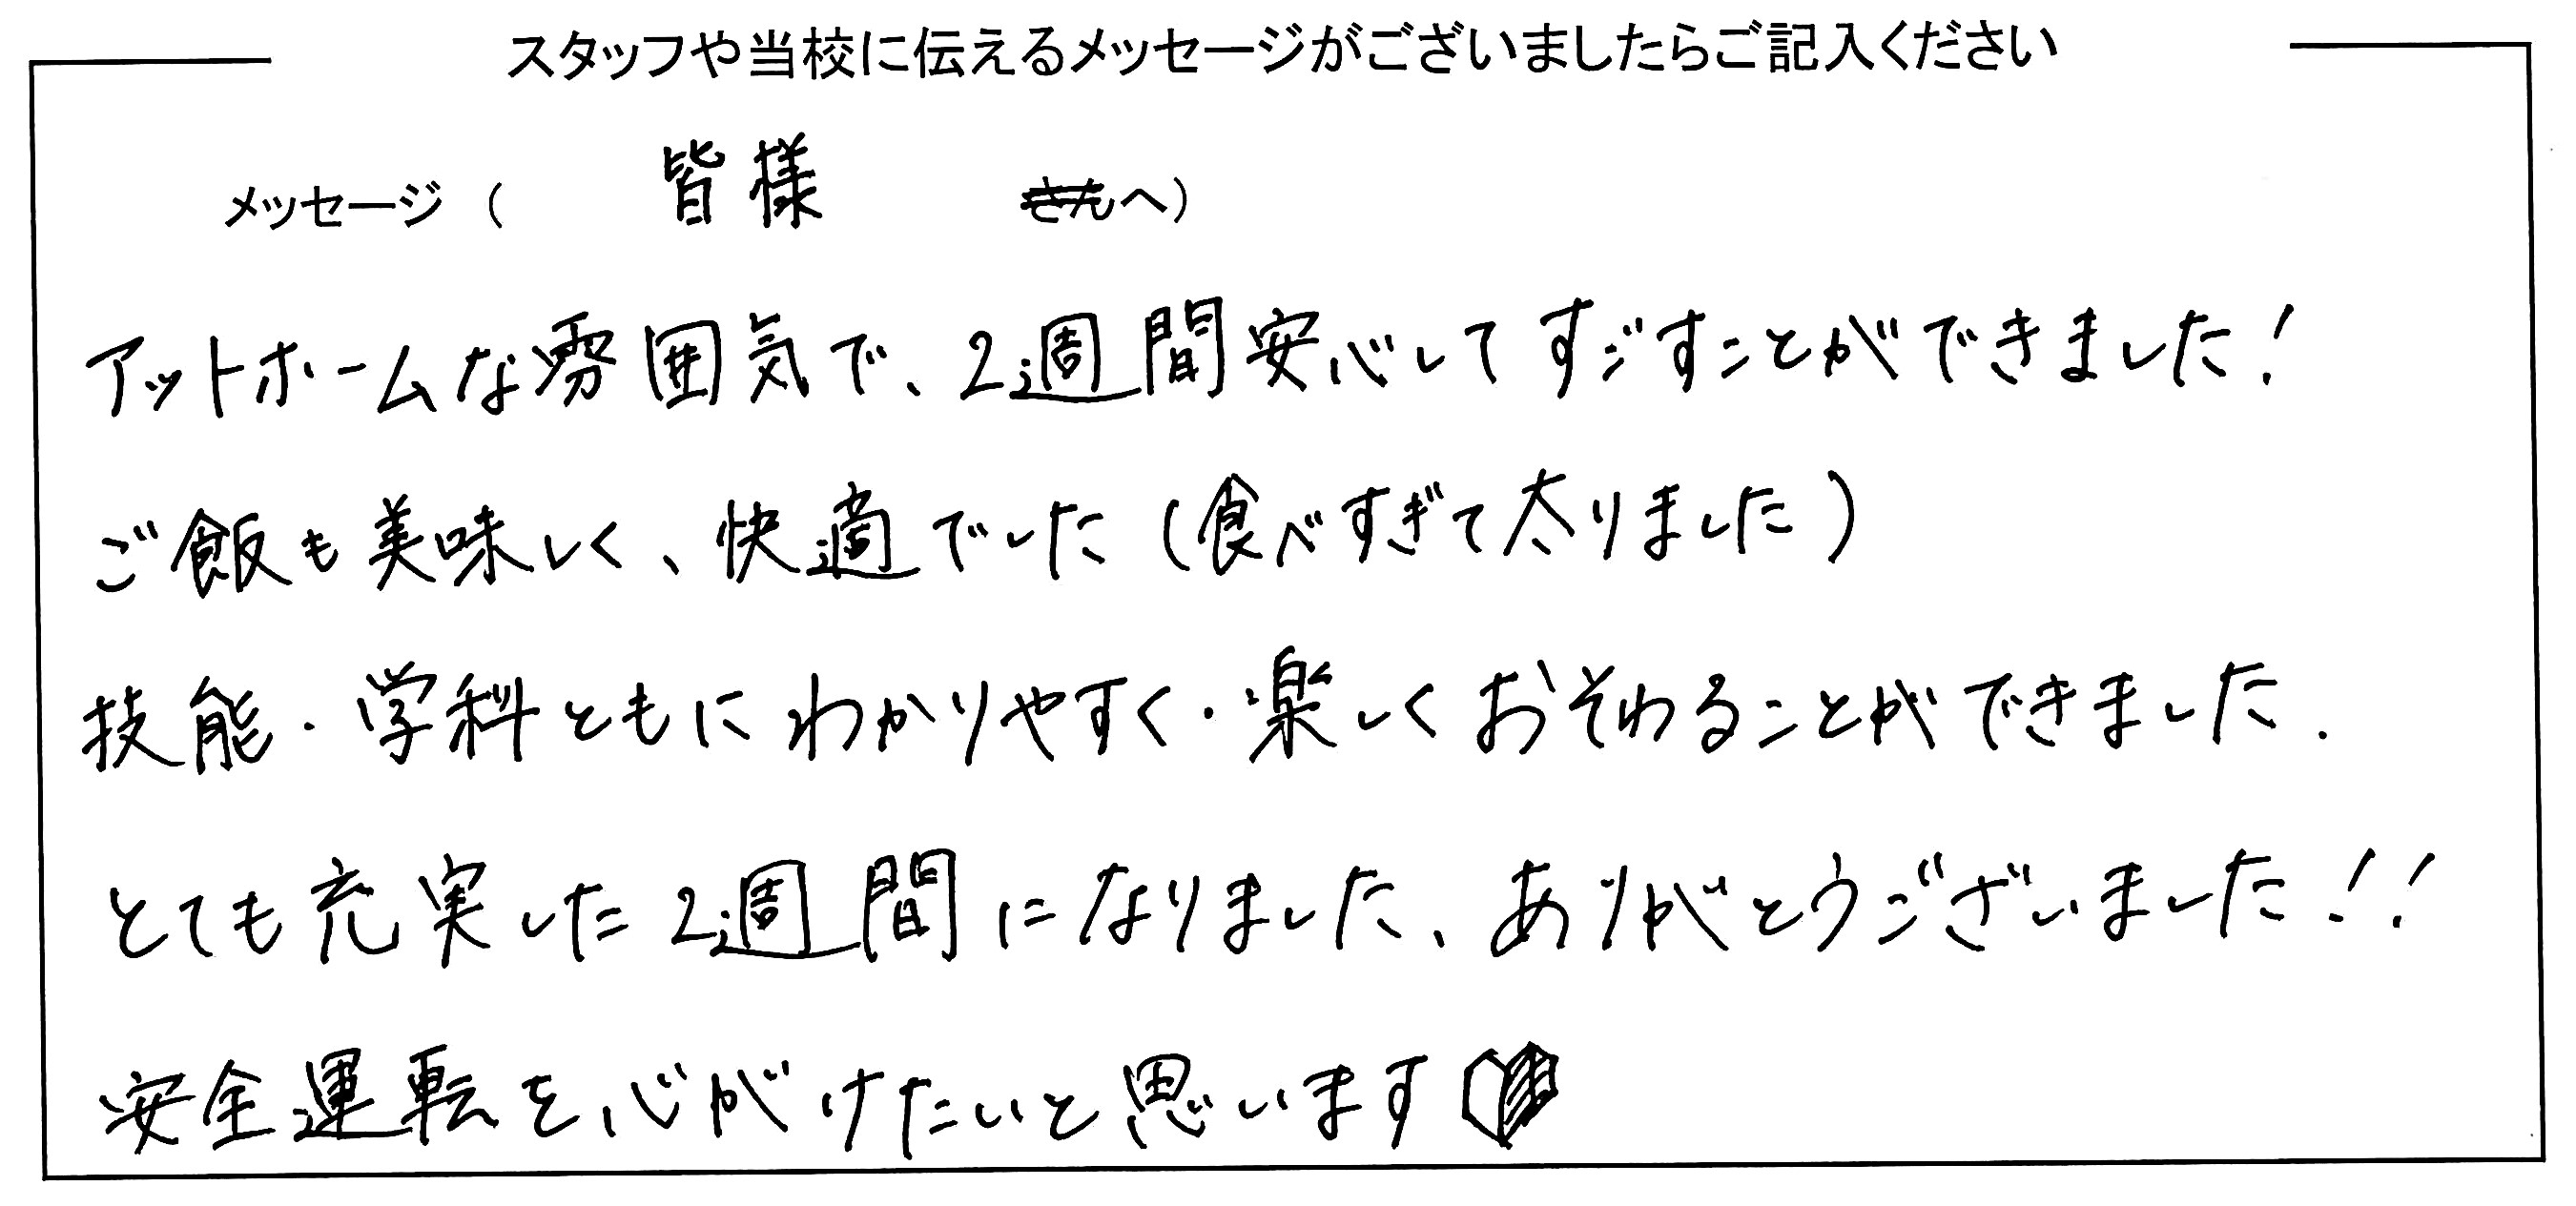 スタッフや当校に伝えるメッセージがございましたらご記入ください
メッセージ（ 皆様 さんへ）
アットホームな雰囲気で、2週間安心してすごすことができました！
ご飯も美味しく、快適でした（食べすぎて太りました）
技能・学科ともにわかりやすく・楽しくおそわることができました.
とても充実した2週間になりました、ありがとうございました！！
安全運転を心がけたいと思います